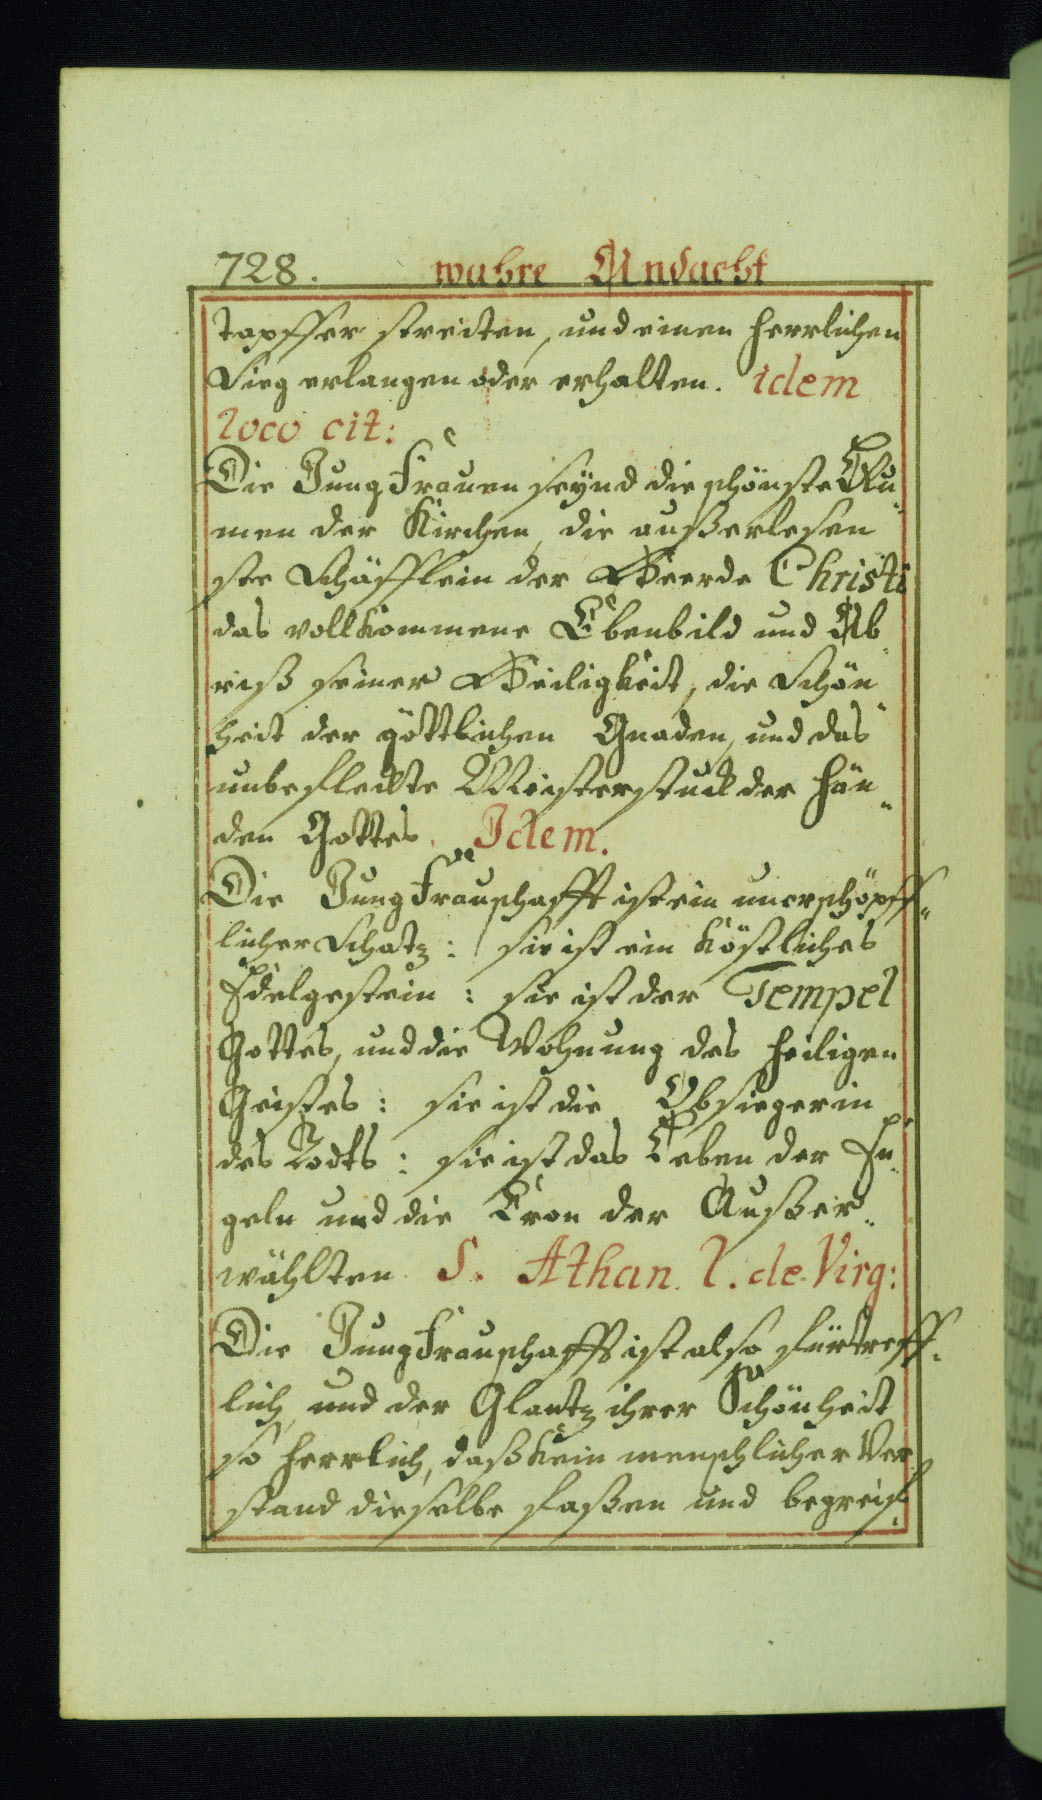 728. wahre Andacht
tapffer streiten, und einen herrlichen
Sieg erlangen oder erhalten. idem
loco cit:
Die Jungfrauen seynd die schönste Blu„
men der Kirchen, die außerlesen„
ste Schäfflein der Heerde Christi
das vollkommene Ebenbild und Ab„
riß seiner Heiligkeit, die Schön„
heit der göttlichen Gnaden, und das
unbefleckte Meisterstuck der Hän„
den Gottes. Idem.
Die Jungfrauschafft ist ein unerschöpff„
licher Schatz: sie ist ein köstliches
Edelgestein: sie ist der Tempel
Gottes, und die Wohnung des heiligen
Geistes: sie ist die Obsiegerin
des Todts: sie ist das Leben der En„
geln und die Cron der Außer„
wählten. S. Athan. l. de Virg:
Die Jungfrauschafft ist also fürtreff„
lich, und der Glantz ihrer Schönheit
so herrlich, daß kein menschlicher Ver„
stand dieselbe faßen und begreif„